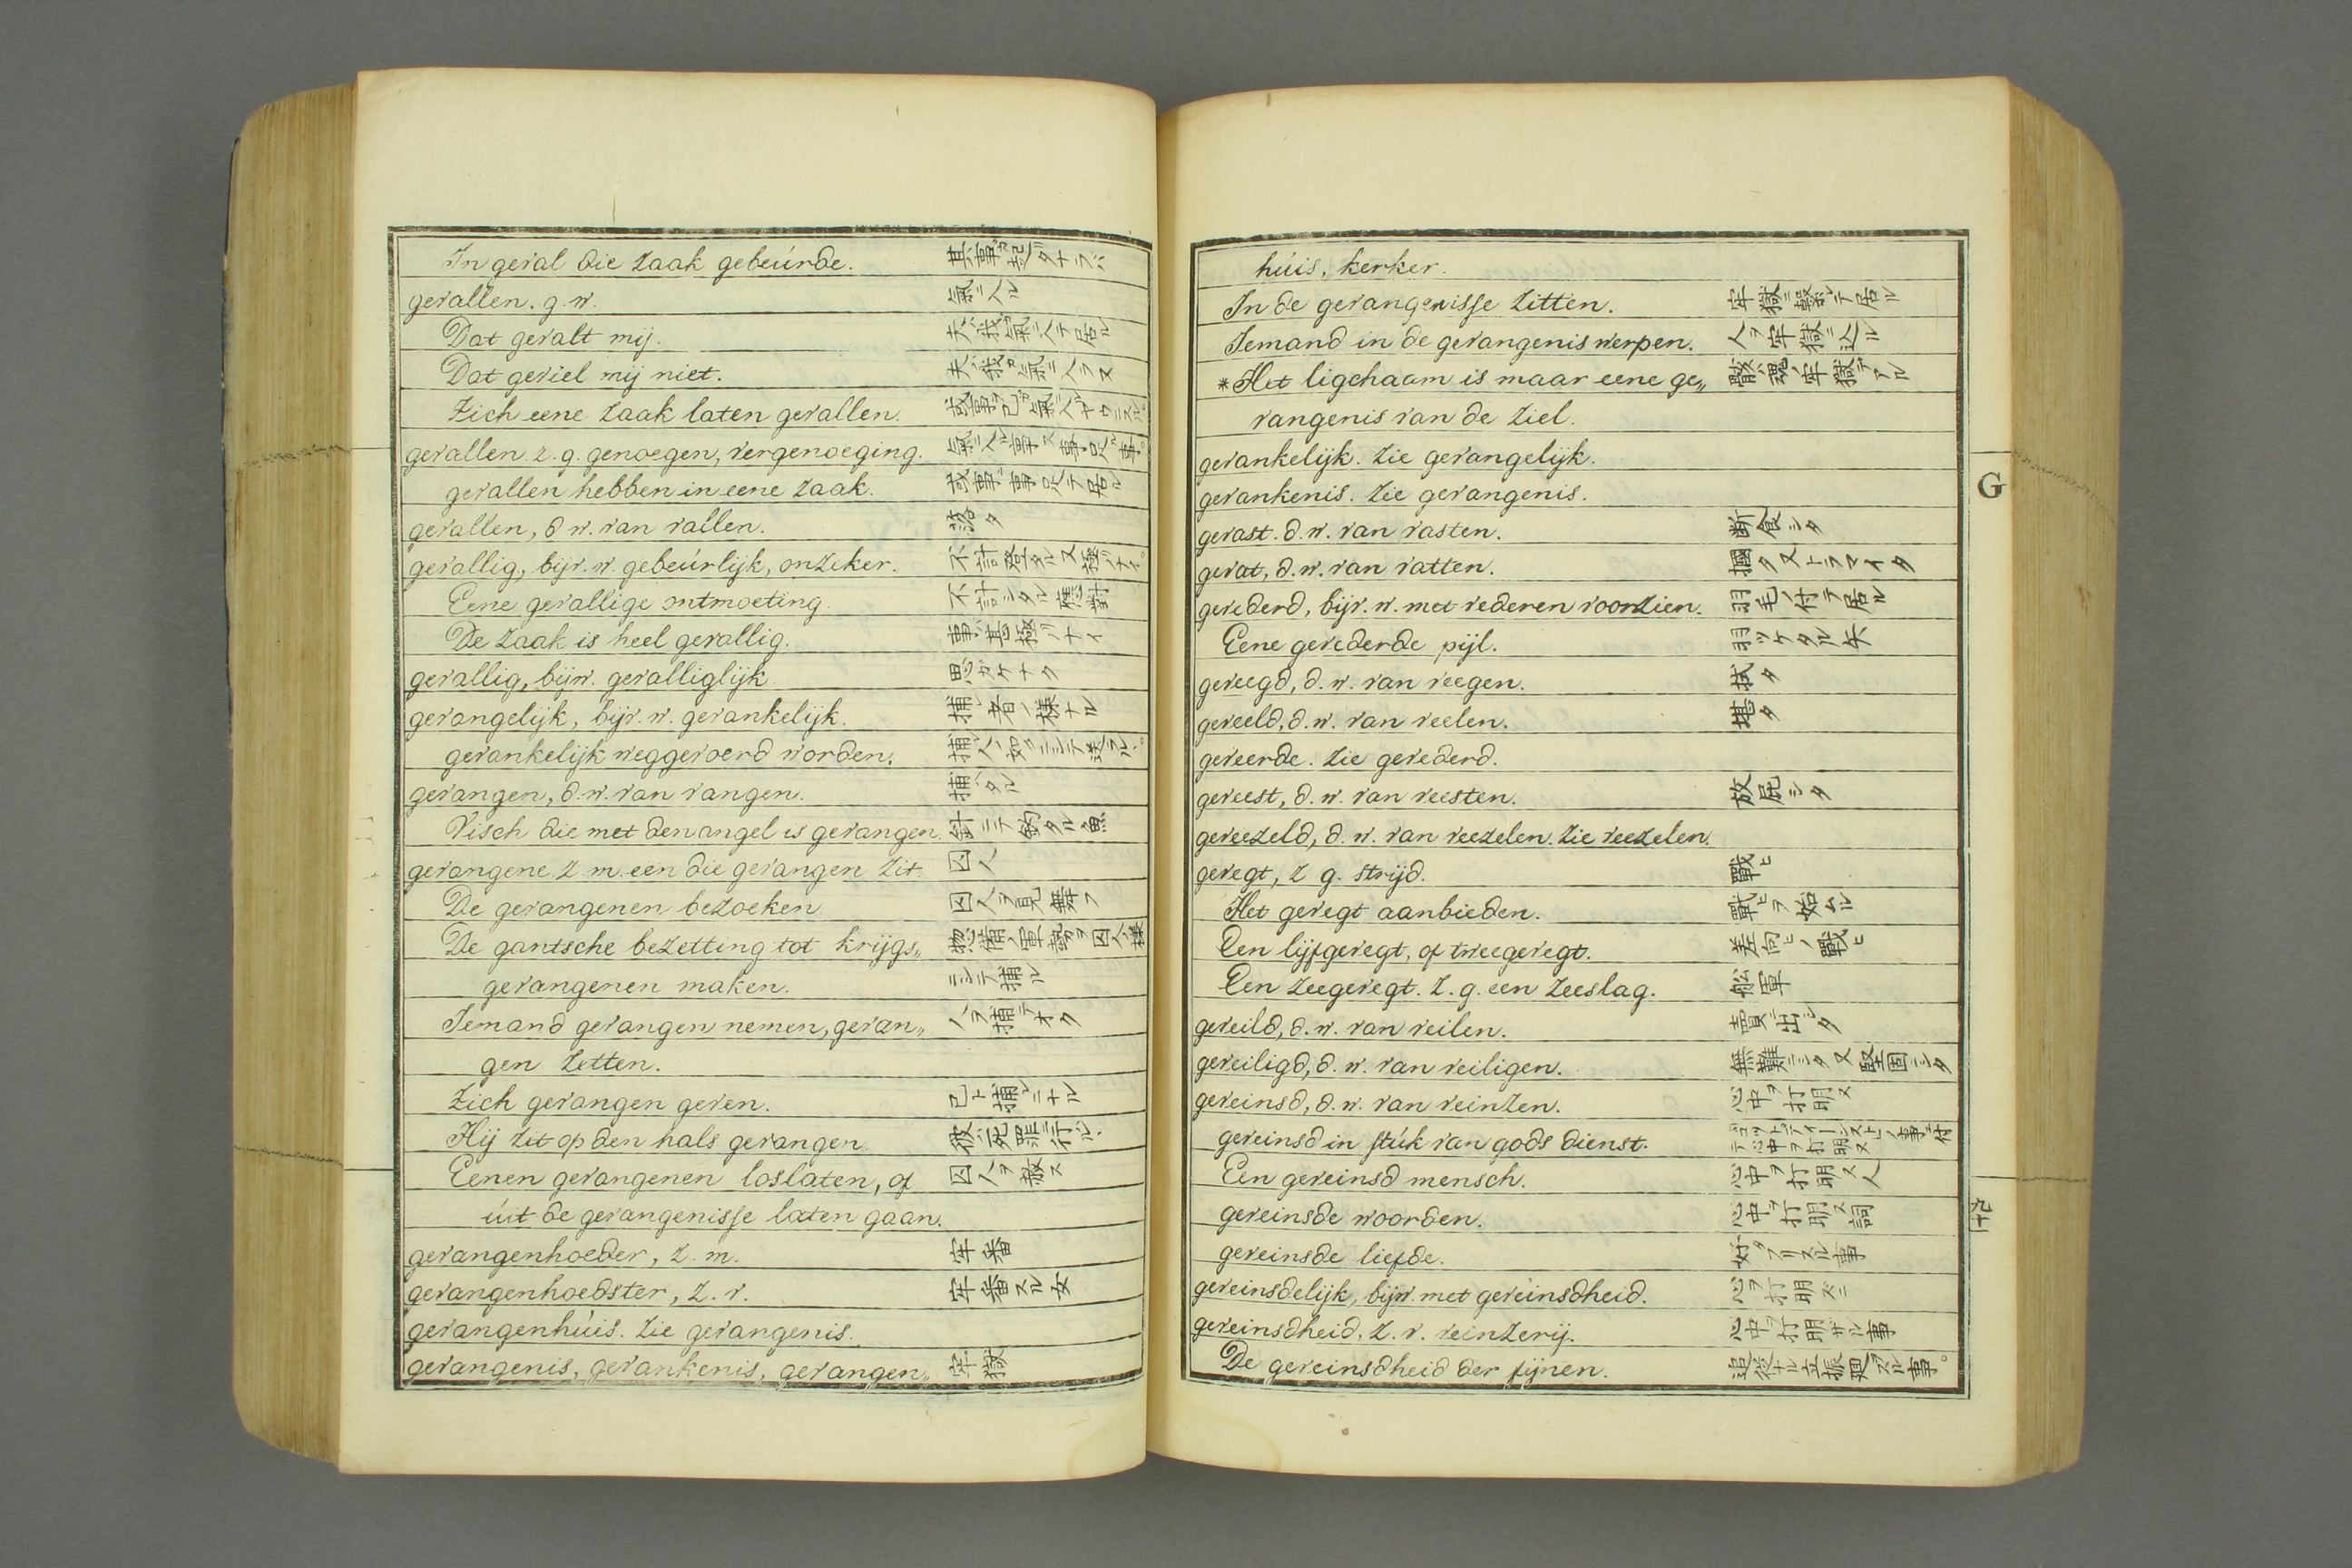 In geval die zaak gebeúrde. 其事ガ起リタナラバ
gevallen. g.w. 氣ニ入ル
Dat gevalt mij. 夫ハ我氣ニ入テ居ル
Dat geviel mij niet. 夫ハ我ガ氣ニ入ラヌ
Zich eene zaak laten gevallen. 或事ヲ己ガ氣ニ入ヤウニスル。
gevallen. z.g. genoegen, vergenoeging. 氣ニ入ル事又事足ル事。
gevallen hebben in eene zaak. 或事ニ事足テ居ル
gevallen, d.w. van vallen. 落タ
gevallig, bijv.w. gebeúrlijk, onzeker. 不計登タル又極リナイ。
Eene gevallige ontmoeting. 不計シタル應對
De zaak is heel gevallig. 事ガ甚極リナイ
gevallig, bijw. gevalliglijk 思ガケナク
gevangelijk, bijv.w. gevankelijk. 捕レ者ノ様ナル
gevankelijk weggevoerd worden. 捕レ人ノ如クニシテ送ラル。
gevangen, d.w. van vangen. 捕ヘタル
Visch die met den angel is gevangen. 針ニテ釣タル魚
gevangene. z.m. een die gevangen zit. 囚人
De gevangenen bezoeken 囚人ヲ見舞フ
De gantsche bezetting tot krijgs„ 惣備ノ軍勢ヲ囚人様
gevangenen maken. ニシテ捕ル
Iemand gevangen nemen, gevan„ 人ヲ捕テオク
gen zetten.
Zich gevangen geven. 己ト捕レニナル
Hij zit op den hals gevangen 彼ハ死罪ニ行ハル
Eenen gevangenen loslaten, of 囚人ヲ赦ス
úit de gevangenisse laten gaan.
gevangenhoeder, z.m. 牢番
gevangenhoedster, z.v. 牢番スル女
gevangenhúis. zie gevangenis.
gevangenis, gevankenis, gevangen„ 牢獄
húis, kerker.
In de gevangenisse zitten. 牢獄ニ繋レテ居ル
Iemand in de gevangenis werpen. 人ヲ牢獄ニ込ル
*Het ligchaam is maar eene ge„ 骸ハ魂ノ牢獄デアル
vangenis van de ziel.
gevankelijk. zie gevangelijk.
gevankenis. zie gevangenis.
G
gevast. d.w. van vasten. 断食シタ
gevat, d.w. van vatten. 摑タ又トラマイタ
gevederd, bijv.w. met vederen voorzien. 羽毛ノ付テ居ル
Eene gevederde pijl. 羽ツケタル矢
geveegd, d.w. van veegen. 拭タ
geveeld, d.w. van veelen. 堪タ
geveerde. zie gevederd.
geveest, d.w. van veesten. 放屁シタ
geveezeld, d.w. van veezelen. zie veezelen.
gevegt, z g. strijd. 戰ヒ
Het gevegt aanbieden. 戰ヒヲ始ムル
Een lijfgevegt, of tweegevegt. 差向ヒノ戰ヒ
Een zeegevegt. z.g. een zeeslag. 舩軍
geveild, d.w. van veilen. 賣ニ出シタ
geveiligd, d.w. van veiligen. 無難ニシタ又堅固ニシタ
geveinsd, d.w. van veinzen. 心中ヲ打明ヌ
geveinsd in stúk van gods dienst. テ心中ヲ打明ヌ
Een geveinsd mensch. 心中ヲ打明ヌ人
geveinsde woorden. 心中ヲ打明ヌ詞
geveinsde liefde. 好タフリスル事
geveinsdelijk, bijw. met geveinsdheid. 心ヲ打明ズニ
geveinsdheid, z.v. veinzerij. 心中ヲ打明サル事
De geveinsdheid der fijnen. 追從ナル立振廻ヲスル事。